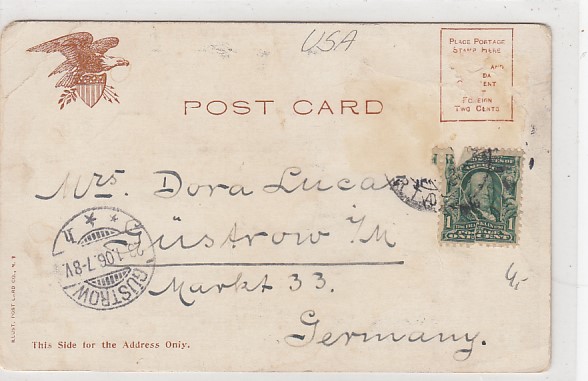 USA
PLACE POSTAGE
STAMP HERE
AND
DA
ENT
FOREIGN
TWO CENTS
POST CARD
Mrs. Dora Lucas
Güstrow i/M
Markt 33.
Germany.
GÜSTROW
1.06.7-8V.
FRANKLIN
POSTAGE
ONE CENT
1
ILLUST. POST CARD CO., N.Y.
This Side for the Address Only.